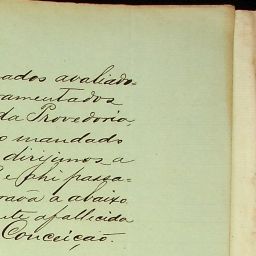 ados avaliado=
amentados
da Provedoria,
o mandado
dirijimos a
e ahi passa=
a abaixo
te afallecida
Conceição.